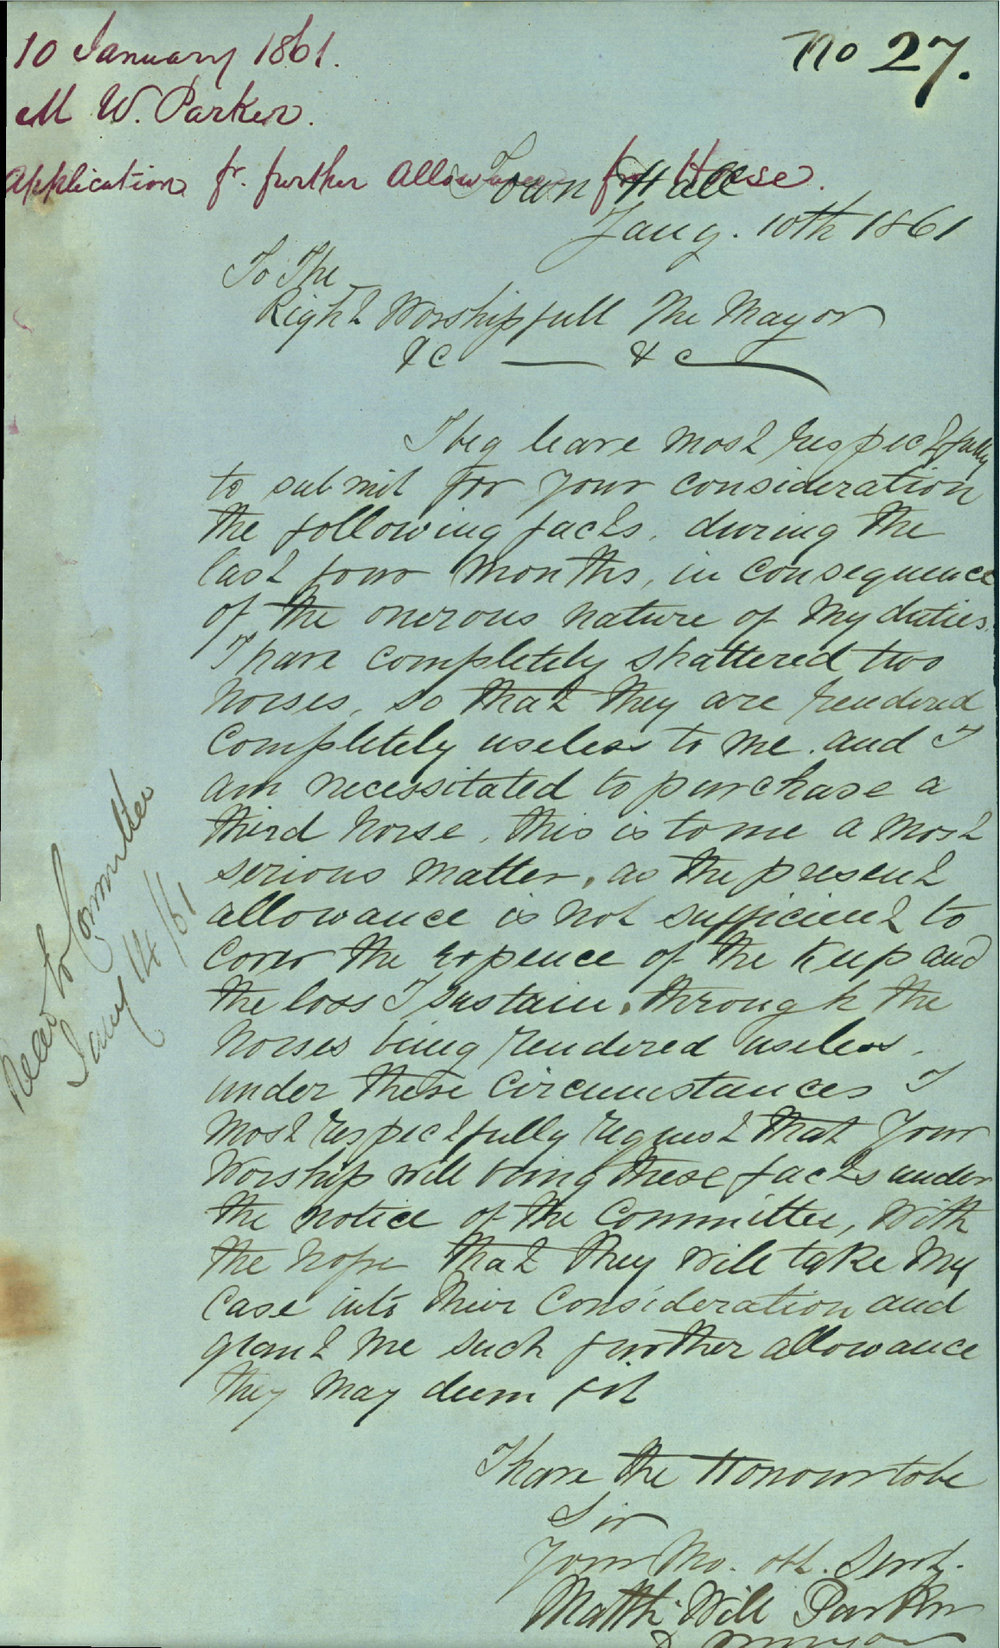 10 January 1861.
No 27.
M W. Parker.
Application fr. further Allowance for Horse.
Town Hall
Jany. 10th 1861
To The
Right Worshipfull The Mayor
&c — &c
I beg leave most respectfully
to submit for your consideration
the following facts. during the
last four months, in consequence
of the onerous nature of my duties.
I have completely shattered two
horses, so that they are rendered
completely useless to me. and I
am necessitated to purchase a
third horse, this is to me a most
serious matter, as the present
allowance is not sufficient to
cover the expence of the keep and
the loss I sustain, through the
horses being rendered useless.
under these circumstances I
most respectfully request that your
Worship will bring these facts under
the notice of the Committee, with
the hope that they will take my
case into their Consideration and
grant me such further allowance
they may deem fit
I have the Honour to be
Sir
Your Mo. obt. Servt.
Matth. Will Parker
to Committee
Jany 14/61